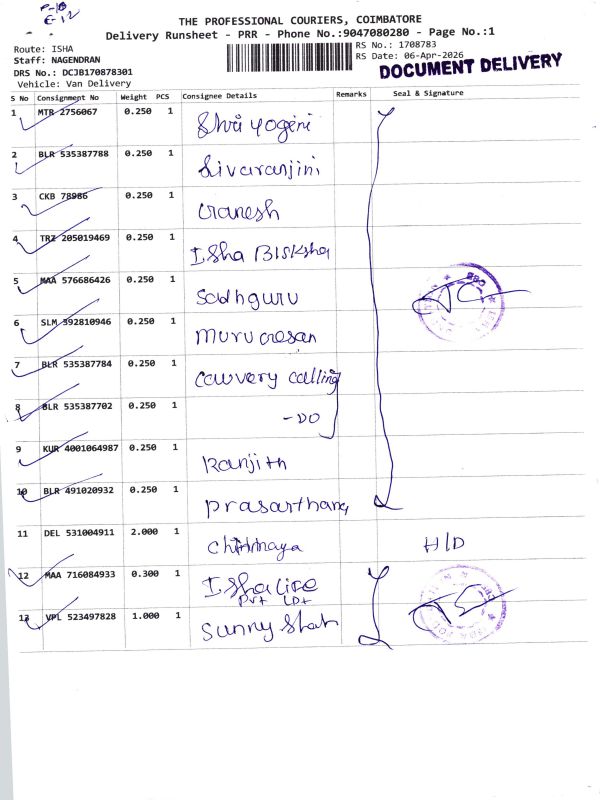 P-10
E-12
THE PROFESSIONAL COURIERS, COIMBATORE
Delivery Runsheet - PRR - Phone No.:9047080280 - Page No.:1
Route: ISHA
RS No.: 1708783
Staff: NAGENDRAN
RS Date: 06-Apr-2026
DRS No.: DCJB170878301
DOCUMENT DELIVERY
Vehicle: Van Delivery
S No Consignment No Weight PCS Consignee Details Remarks Seal & Signature
1 MTR 2756067 0.250 1 Shri Yogeni
2 BLR 535387788 0.250 1 Sivaranjini
3 CKB 78986 0.250 1 Ganesh
4 TRZ 205019469 0.250 1 Isha BISKsha
5 MAA 576686426 0.250 1 Sadhguru
6 SLM 392810946 0.250 1 Murugesan
7 BLR 535387784 0.250 1 Cauvery calling
8 BLR 535387702 0.250 1 -DO
9 KUR 4001064987 0.250 1 Ranjith
10 BLR 491020932 0.250 1 Prasarthana
11 DEL 531004911 2.000 1 Chinmaya H/D
12 MAA 716084933 0.300 1 Isha Life
Pvt Ltd
13 VPL 523497828 1.000 1 Sunny Shah